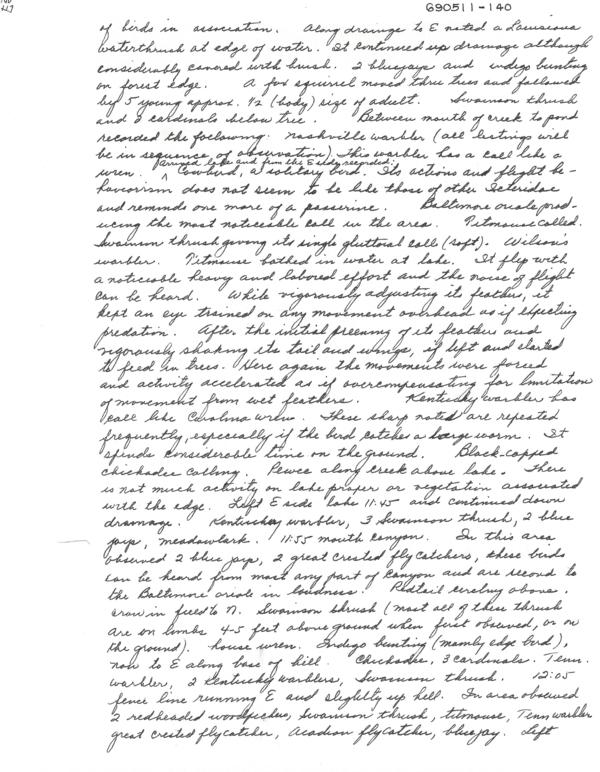 690511-140
of birds in association. Along drainage to E noted a Louisiana
waterthrush at edge of water. It continued up drainage although
considerably covered with brush. 2 bluejays and indigo bunting
on forest edge. A fox squirrel moved thru trees and followed
by 5 young approx. 1/2 (body) size of adult. Swainson thrush
and cardinals below tree. Between mouth of creek to pond
recorded the following: nashville warbler (all listings will
be in sequence of observation). This warbler has a call like a
wren. Cowbird, a solitary bird. Its actions and flight be-
haviorism does not seem to be like those of other Icteridae
and reminds one more of a passerine. Baltimore oriole prod-
ucing the most noticeable call in the area. Titmouse called.
Swainson thrush giving its single gluttoral call (soft). Wilson's
warbler. Titmouse bathed in water at lake. It flip with
a noticeable heavy and labored effort and the noise of flight
can be heard. While vigorously adjusting its feathers, it
kept an eye trained on any movement overhead as if expecting
predation. After the initial preening of its feathers and
vigorously shaking its tail and wings, it left and started
to feed in trees. Here again the movements were forced
and activity accelerated as if overcompensating for limitation
of movement from wet feathers. Kentucky warbler has
call like Carolina wren. These sharp notes are repeated
frequently, especially if the bird catches a large worm. It
spends considerable time on the ground. Black-capped
chickadee calling. Pewee along creek above lake. There
is not much activity on lake proper or vegetation associated
with the edge. Left E side lake 11:45 and continued down
drainage. Kentucky warbler, 3 Swainson thrush, 2 blue
jays, meadowlark. 11:55 mouth canyon. In this area
observed 2 blue jays, 2 great crested flycatchers, these birds
can be heard from most any part of canyon and are second to
the Baltimore oriole in loudness. Redtail circling above.
crow in field to N. Swainson thrush (most all of these thrush
are on limbs 4-5 feet above ground when first observed, or on
the ground). house wren. Indigo bunting (mainly edge bird),
now to E along base of hill. Chickadee, 3 cardinals. Tenn.
warbler, 2 Kentucky warblers, Swainson thrush. 12:05
fence line running E and slightly up hill. In area observed
2 redheaded woodpeckers, Swainson thrush, titmouse, Tenn warbler
great crested flycatcher, Acadian flycatcher, bluejay. Left